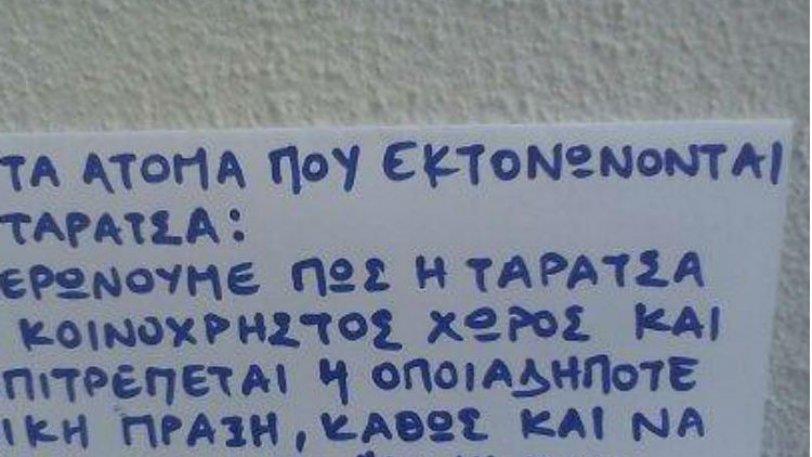 ΤΑ ΑΤΟΜΑ ΠΟΥ ΕΚΤΟΝΩΝΟΝΤΑΙ
ΤΑΡΑΤΣΑ:
ΕΡΩΝΟΥΜΕ ΠΩΣ Η ΤΑΡΑΤΣΑ
ΚΟΙΝΟΧΡΗΣΤΟΣ ΧΩΡΟΣ ΚΑΙ
ΠΙΤΡΕΠΕΤΑΙ Η ΟΠΟΙΑΔΗΠΟΤΕ
ΙΚΗ ΠΡΑΞΗ, ΚΑΘΩΣ ΚΑΙ ΝΑ